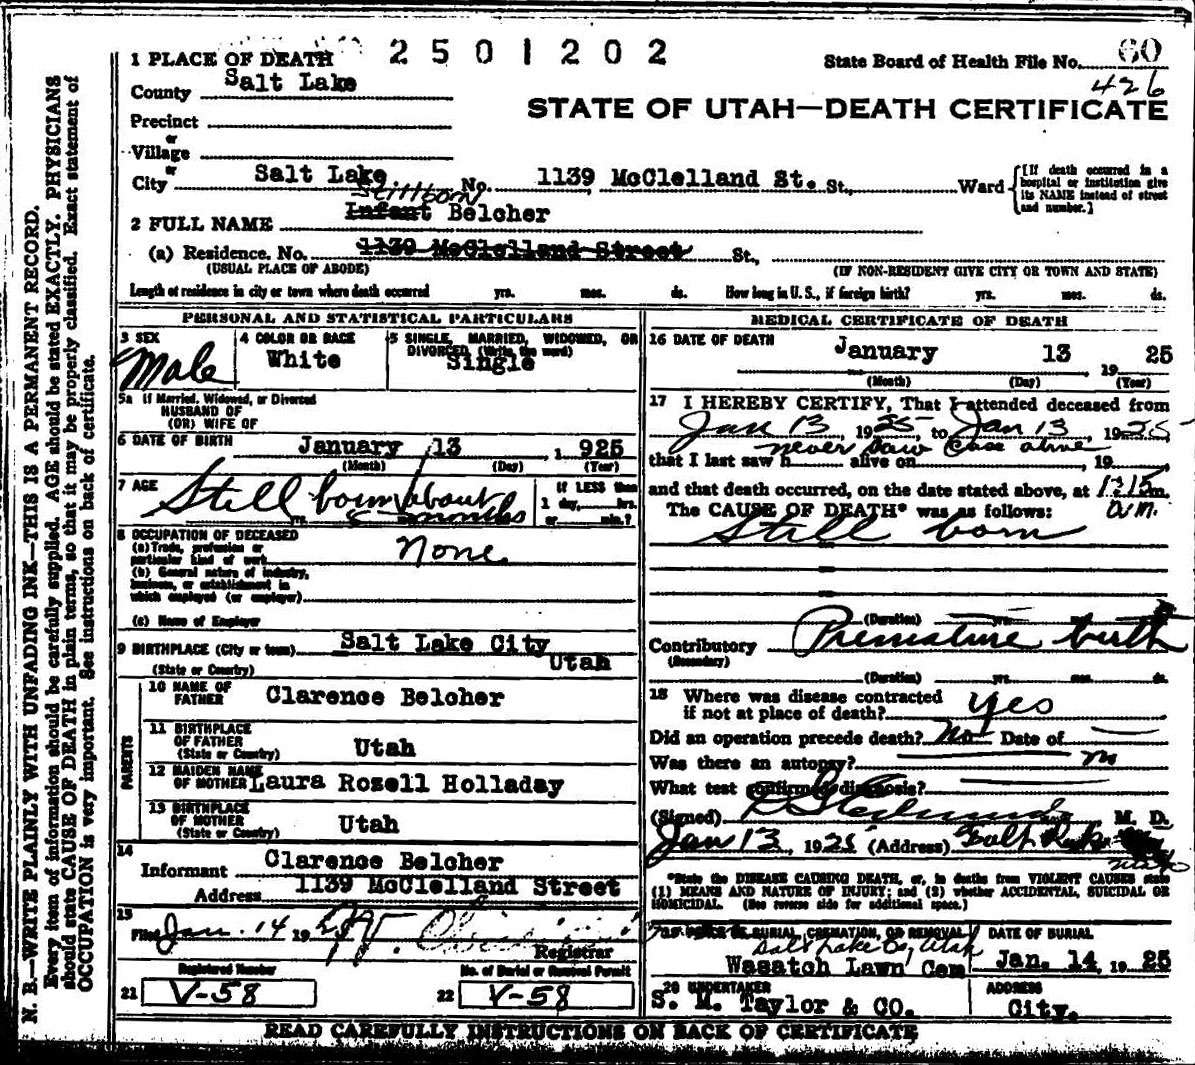 2501202
State Board of Health File No. 60
426
STATE OF UTAH—DEATH CERTIFICATE
1 PLACE OF DEATH
County Salt Lake
Precinct
or
Village
or
City Salt Lake No. 1139 McClelland St. St., Ward
[If death occurred in a hospital or institution give its NAME instead of street and number.]
Stillborn
2 FULL NAME Infant Belcher
(a) Residence. No. 1139 McClelland Street St.,
(USUAL PLACE OF ABODE) (IF NON-RESIDENT GIVE CITY OR TOWN AND STATE)
Length of residence in city or town where death occurred yrs. mos. ds. How long in U. S., if foreign birth? yrs. mos. ds.
PERSONAL AND STATISTICAL PARTICULARS
3 SEX
Male
4 COLOR OR RACE
White
5 SINGLE, MARRIED, WIDOWED, OR
DIVORCED (Write the word)
Single
5a If Married, Widowed, or Divorced
HUSBAND OF
(OR) WIFE OF
6 DATE OF BIRTH January 13 1925
(Month) (Day) (Year)
7 AGE Still born about
5 months
If LESS than
1 day, hrs.
or min.?
8 OCCUPATION OF DECEASED
(a) Trade, profession or
particular kind of work None
(b) General nature of industry,
business, or establishment in
which employed (or employer)
(c) Name of Employer
9 BIRTHPLACE (City or town) Salt Lake City
(State or Country) Utah
PARENTS
10 NAME OF
FATHER Clarence Belcher
11 BIRTHPLACE
OF FATHER
(State or Country) Utah
12 MAIDEN NAME
OF MOTHER Laura Rozell Holladay
13 BIRTHPLACE
OF MOTHER
(State or Country) Utah
14
Informant Clarence Belcher
Address 1139 McClelland Street
15
Filed Jan. 14 19
Registrar
Registered Number
21 V-58
No. of Burial or Removal Permit
22 V-58
MEDICAL CERTIFICATE OF DEATH
16 DATE OF DEATH January 13, 1925
(Month) (Day) (Year)
17 I HEREBY CERTIFY, That I attended deceased from
Jan 13, 1925, to Jan 13, 1925,
never saw case alive
that I last saw h alive on , 19
and that death occurred, on the date stated above, at 1215 m.
a.m.
The CAUSE OF DEATH* was as follows:
Still born
(Duration) yrs. mos. ds.
Contributory Premature birth
(Secondary)
(Duration) yrs. mos. ds.
18 Where was disease contracted
if not at place of death? yes
Did an operation precede death? No Date of
Was there an autopsy? no
What test confirmed diagnosis?
(Signed) M. D.
Jan 13, 1925 (Address) Salt Lake
*State the DISEASE CAUSING DEATH, or, in deaths from VIOLENT CAUSES state
(1) MEANS AND NATURE OF INJURY; and (2) whether ACCIDENTAL, SUICIDAL OR
HOMICIDAL. (See reverse side for additional space.)
19 PLACE OF BURIAL, CREMATION, OR REMOVAL
Salt Lake Co, Utah
Wasatch Lawn Cem
DATE OF BURIAL
Jan. 14, 1925
20 UNDERTAKER
S. M. Taylor & CO.
ADDRESS
City.
READ CAREFULLY INSTRUCTIONS ON BACK OF CERTIFICATE
N. B.—WRITE PLAINLY WITH UNFADING INK—THIS IS A PERMANENT RECORD.
Every item of information should be carefully supplied. AGE should be stated EXACTLY. PHYSICIANS
should state CAUSE OF DEATH in plain terms, so that it may be properly classified. Exact statement of
OCCUPATION is very important. See instructions on back of certificate.